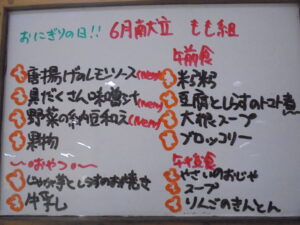 おにぎりの日!! 6月献立 もも組
唐揚げのレモンソース(new)
具だくさん味噌汁(new)
野菜の納豆和え(new)
果物
~~おやつ~~
じゃが芋としらすのお焼き
牛乳
午前食
粥
豆腐としらすのトマト煮
大根スープ
ブロッコリー
午後食
やさいのおじや
スープ
りんごのきんとん